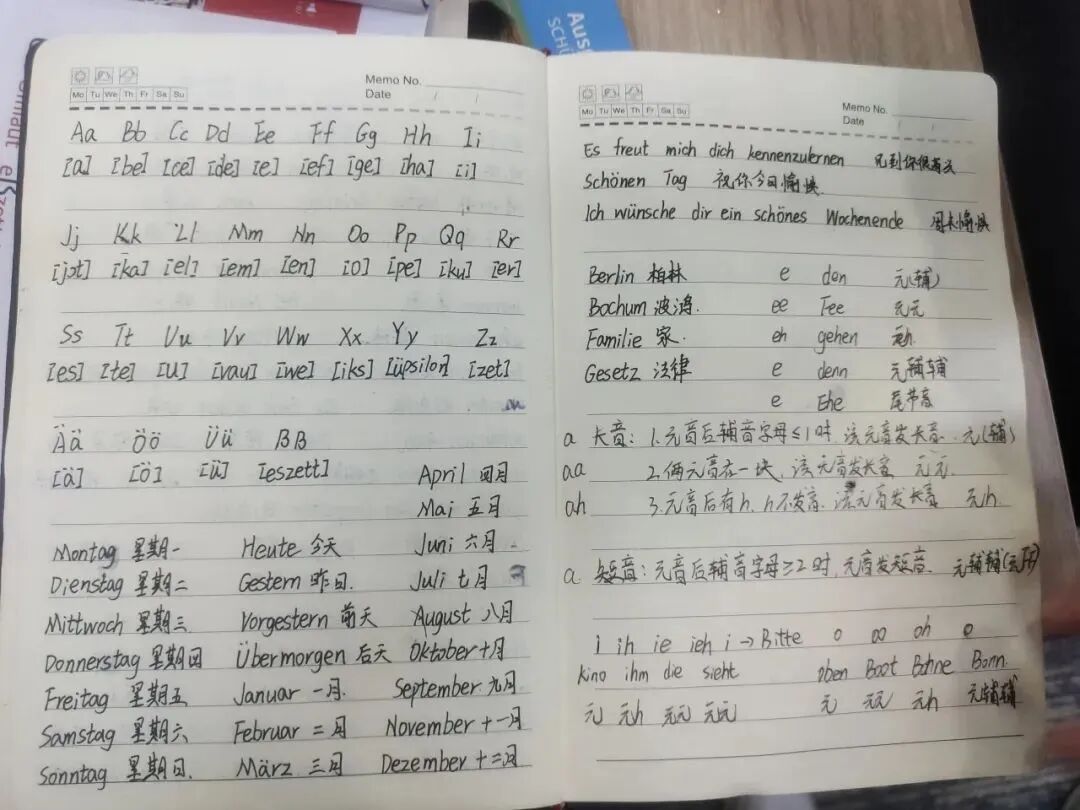 Memo No.
Date
Mo Tu We Th Fr Sa Su
Aa Bb Cc Dd Ee Ff Gg Hh Ii
[a] [be] [ce] [de] [e] [ef] [ge] [ha] [i]
Jj Kk Ll Mm Nn Oo Pp Qq Rr
[jɔt] [ka] [el] [em] [en] [o] [pe] [ku] [er]
Ss Tt Uu Vv Ww Xx Yy Zz
[es] [te] [u] [vau] [we] [iks] [üpsilon] [zet]
Ää Öö Üü ßß
[ä] [ö] [ü] [eszett] April 四月
Mai 五月
Montag 星期一 Heute 今天 Juni 六月
Dienstag 星期二 Gestern 昨日. Juli 七月
Mittwoch 星期三 Vorgestern 前天 August 八月
Donnerstag 星期四 Übermorgen 后天 Oktober 十月
Freitag 星期五 Januar 一月. September 九月
Samstag 星期六 Februar 二月 November 十一月
Sonntag 星期日. März 三月 Dezember 十二月
Memo No.
Date
Mo Tu We Th Fr Sa Su
Es freut mich dich kennenzulernen 见到你很高兴
Schönen Tag 祝你今日愉快.
Ich wünsche dir ein schönes Wochenende 周末愉快
Berlin 柏林 e den 元(辅)
Bochum 波鸿. ee Fee 元元
Familie 家. eh gehen 元h.
Gesetz 法律 e denn 元辅辅
e Ehe 尾节音
a 长音: 1.元音后辅音字母≤1时,该元音发长音. 元(辅)
aa 2.俩元音在一块,该元音发长音 元元.
ah 3.元音后有h,h不发音.该元音发长音 元h.
a 短音:元音后辅音字母≥2时,元音发短音. 元辅辅
i ih ie ieh i→Bitte o oo oh o
kino ihm die sieht oben Boot Bohne Bonn.
元 元h 元元 元 元元 元h 元辅辅